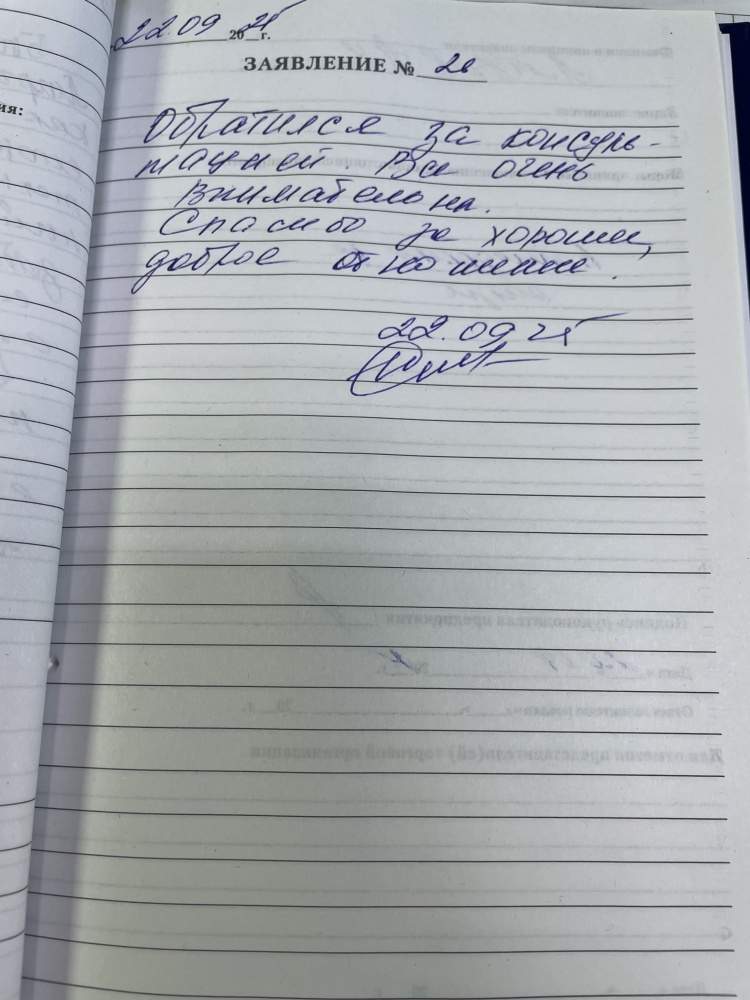 22.09 2025г.
ЗАЯВЛЕНИЕ № 26
ия:
Обратился за консуль-
тацией Все очень
внимательны.
Спасибо за хорошее,
доброе отношение.
22.09 25